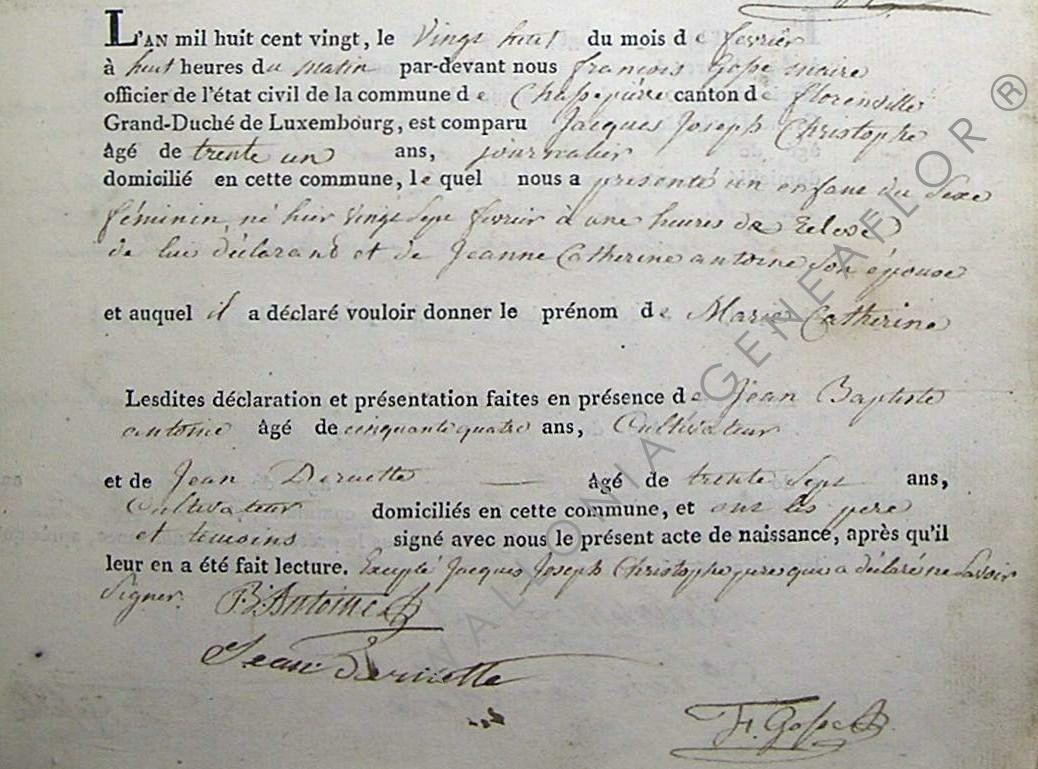 L'AN mil huit cent vingt, le Vingt huit du mois de fevrier
à huit heures du matin par-devant nous françois Gosse maire
officier de l'état civil de la commune de Chassepierre canton de florenville
Grand-Duché de Luxembourg, est comparu Jacques Joseph Christophe
âgé de trente un ans, journalier
domicilié en cette commune, le quel nous a presenté un enfant du Sexe
féminin, né hier Vingt Sept fevrier à une heures de
de lui déclarant et de Jeanne Catherine antoine Son épouse
et auquel il a déclaré vouloir donner le prénom de Marie Catherine
Lesdites déclaration et présentation faites en présence de Jean Baptiste
antoine âgé de cinquante quatre ans, Cultivateur
et de Jean — âgé de trente Sept ans,
Cultivateur domiciliés en cette commune, et ont les pere
et temoins signé avec nous le présent acte de naissance, après qu'il
leur en a été fait lecture. Excepté Jacques Joseph Christophe pere qui a déclaré ne Savoir
Signer. B. Antoine
Jean
F. Gosse
WALLONIA GENEAFLOR ®